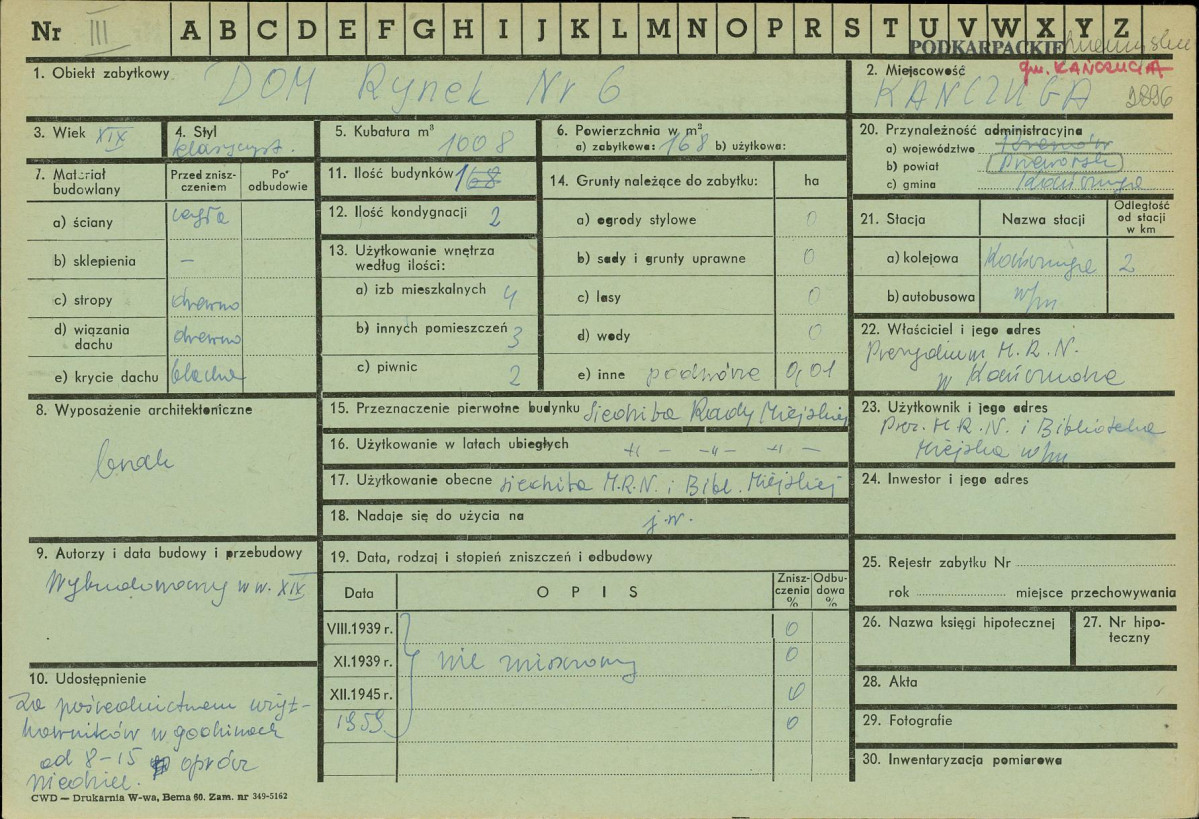 Nr III A B C D E F G H I J K L M N O P R S T U V W X Y Z
PODKARPACKIE
gm. KAŃCZUGA
1. Obiekt zabytkowy DOM Rynek Nr 6
2. Miejscowość KAŃCZUGA 2896
3. Wiek XIX
4. Styl klasycyst.
5. Kubatura m³ 1008
6. Powierzchnia w m²
a) zabytkowa: 168 b) użytkowa:
7. Materiał budowlany
Przed zniszczeniem
Po odbudowie
a) ściany cegła
b) sklepienia –
c) stropy drewno
d) wiązania dachu drewno
e) krycie dachu blacha
8. Wyposażenie architektoniczne
brak
9. Autorzy i data budowy i przebudowy
Wybudowany w w. XIX
10. Udostępnienie
Za pośrednictwem użyt-
kowników w godzinach
od 8-15 oprócz
niedziel.
11. Ilość budynków 1 168
12. Ilość kondygnacji 2
13. Użytkowanie wnętrza
według ilości:
a) izb mieszkalnych 4
b) innych pomieszczeń 3
c) piwnic 2
14. Grunty należące do zabytku: ha
a) ogrody stylowe 0
b) sady i grunty uprawne 0
c) lasy 0
d) wody 0
e) inne podwórze 0,01
15. Przeznaczenie pierwotne budynku Siedziba Rady Miejskiej
16. Użytkowanie w latach ubiegłych -"- -"- -"-
17. Użytkowanie obecne siedziba M.R.N. i Bibl. Miejskiej
18. Nadaje się do użycia na j.w.
19. Data, rodzaj i stopień zniszczeń i odbudowy
Data OPIS Zniszczenia % Odbudowa %
VIII.1939 r. 0
XI.1939 r. nie zniszczony 0
XII.1945 r. 0
1959 0
20. Przynależność administracyjna
a) województwo
b) powiat Przeworsk
c) gmina Kańczuga
21. Stacja Nazwa stacji Odległość od stacji w km
a) kolejowa Kańczuga 2
b) autobusowa w/m
22. Właściciel i jego adres
Prezydium M.R.N.
w Kańczudze
23. Użytkownik i jego adres
Prez. M.R.N. i Biblioteka
Miejska w/m
24. Inwestor i jego adres
25. Rejestr zabytku Nr
rok miejsce przechowywania
26. Nazwa księgi hipotecznej
27. Nr hipoteczny
28. Akta
29. Fotografie
30. Inwentaryzacja pomiarowa
CWD — Drukarnia W-wa, Bema 60. Zam. nr 349-5162